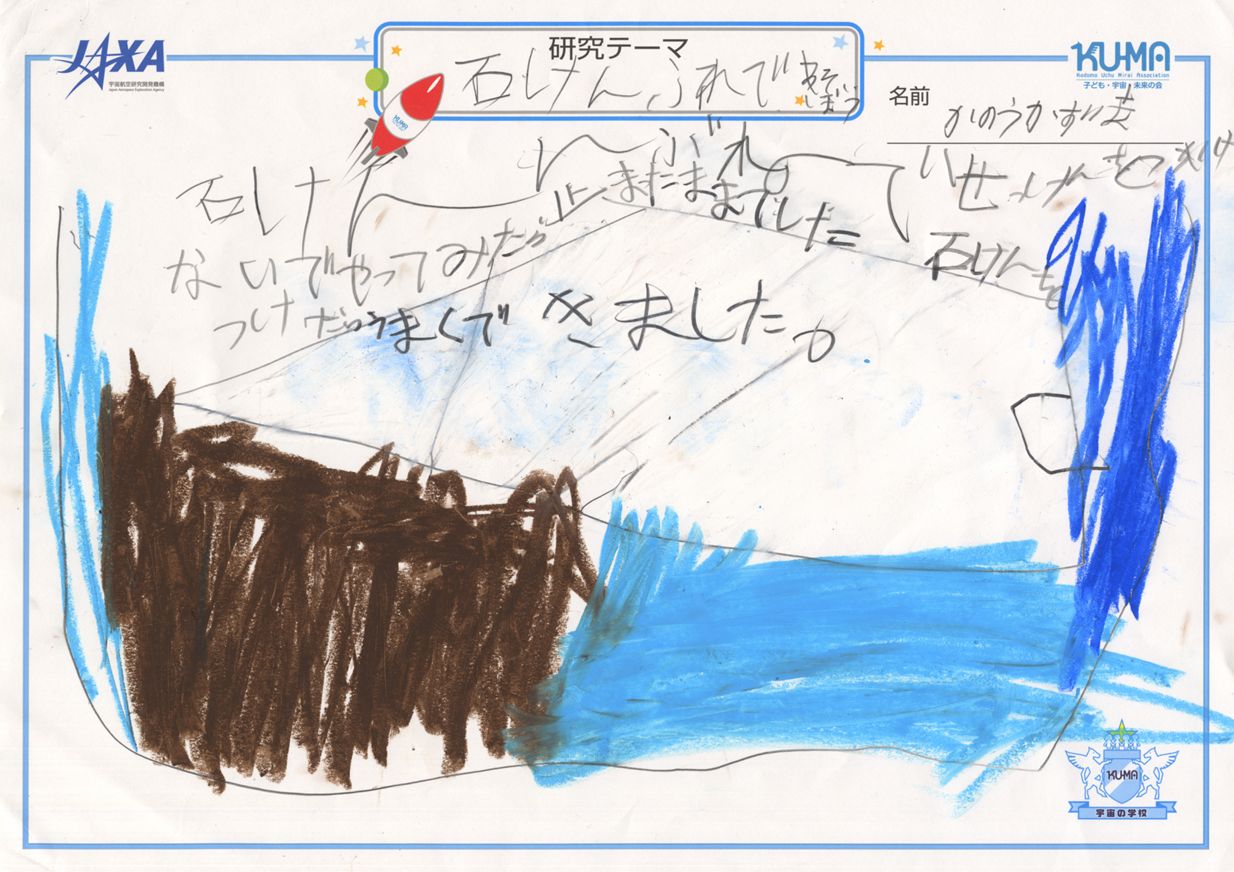 JAXA
宇宙航空研究開発機構
Japan Aerospace Exploration Agency
研究テーマ
石けんふねで
あそ
KUMA
Kodomo Uchu Mirai Association
子ども・宇宙・未来の会
名前
かのうかず
石けん
せっけんをつけ
ないでやってみたが
ままでした
石けんを
つけ うまくで きました。
KUMA
KUMA
宇宙の学校